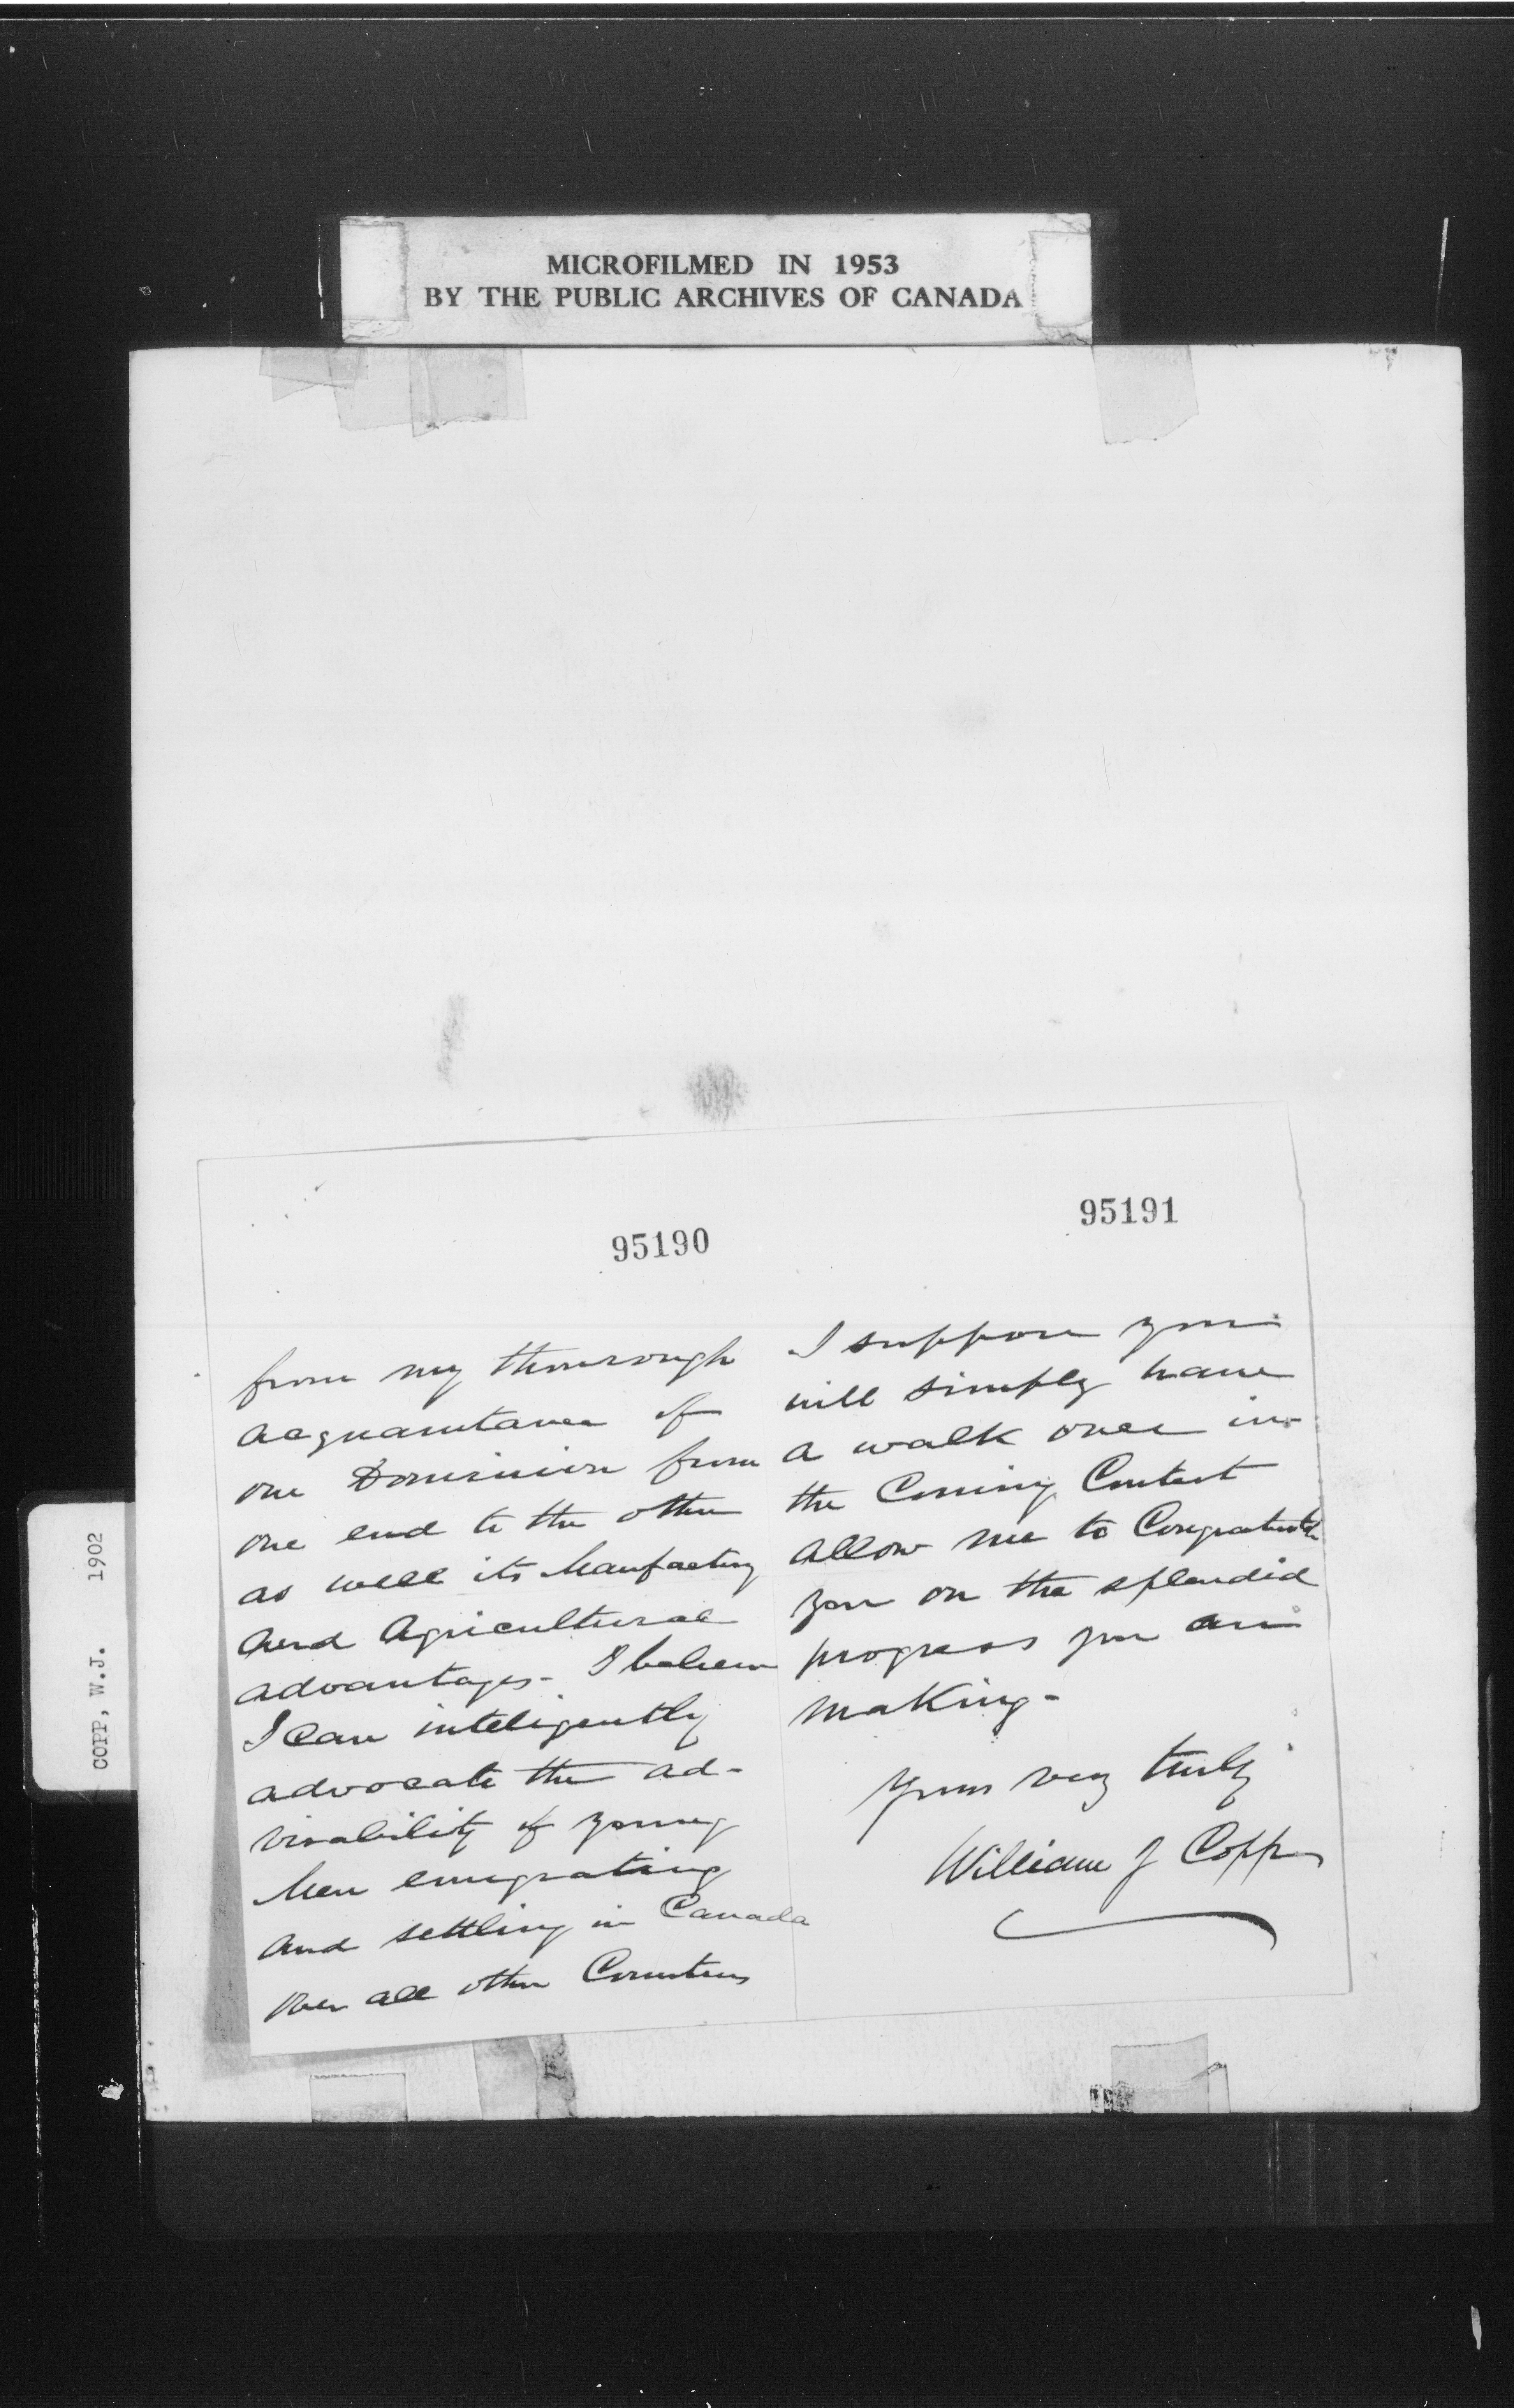 MICROFILMED IN 1953
BY THE PUBLIC ARCHIVES OF CANADA
COPP, W.J. 1902
95190
from my thourough
acquaintance of
our Dominion from
one end to the other
as well its Manfacting
and Agricultural
advantages - I believe
I can inteligently
advocate the ad-
visability of young
Men emigrating
and settling in Canada
over all other Countries
95191
I suppose you
will simply have
a walk over in
the Coming Contest
allow me to Congratulate
you on the splendid
progress you are
making -
Yours very truly
William J Copp